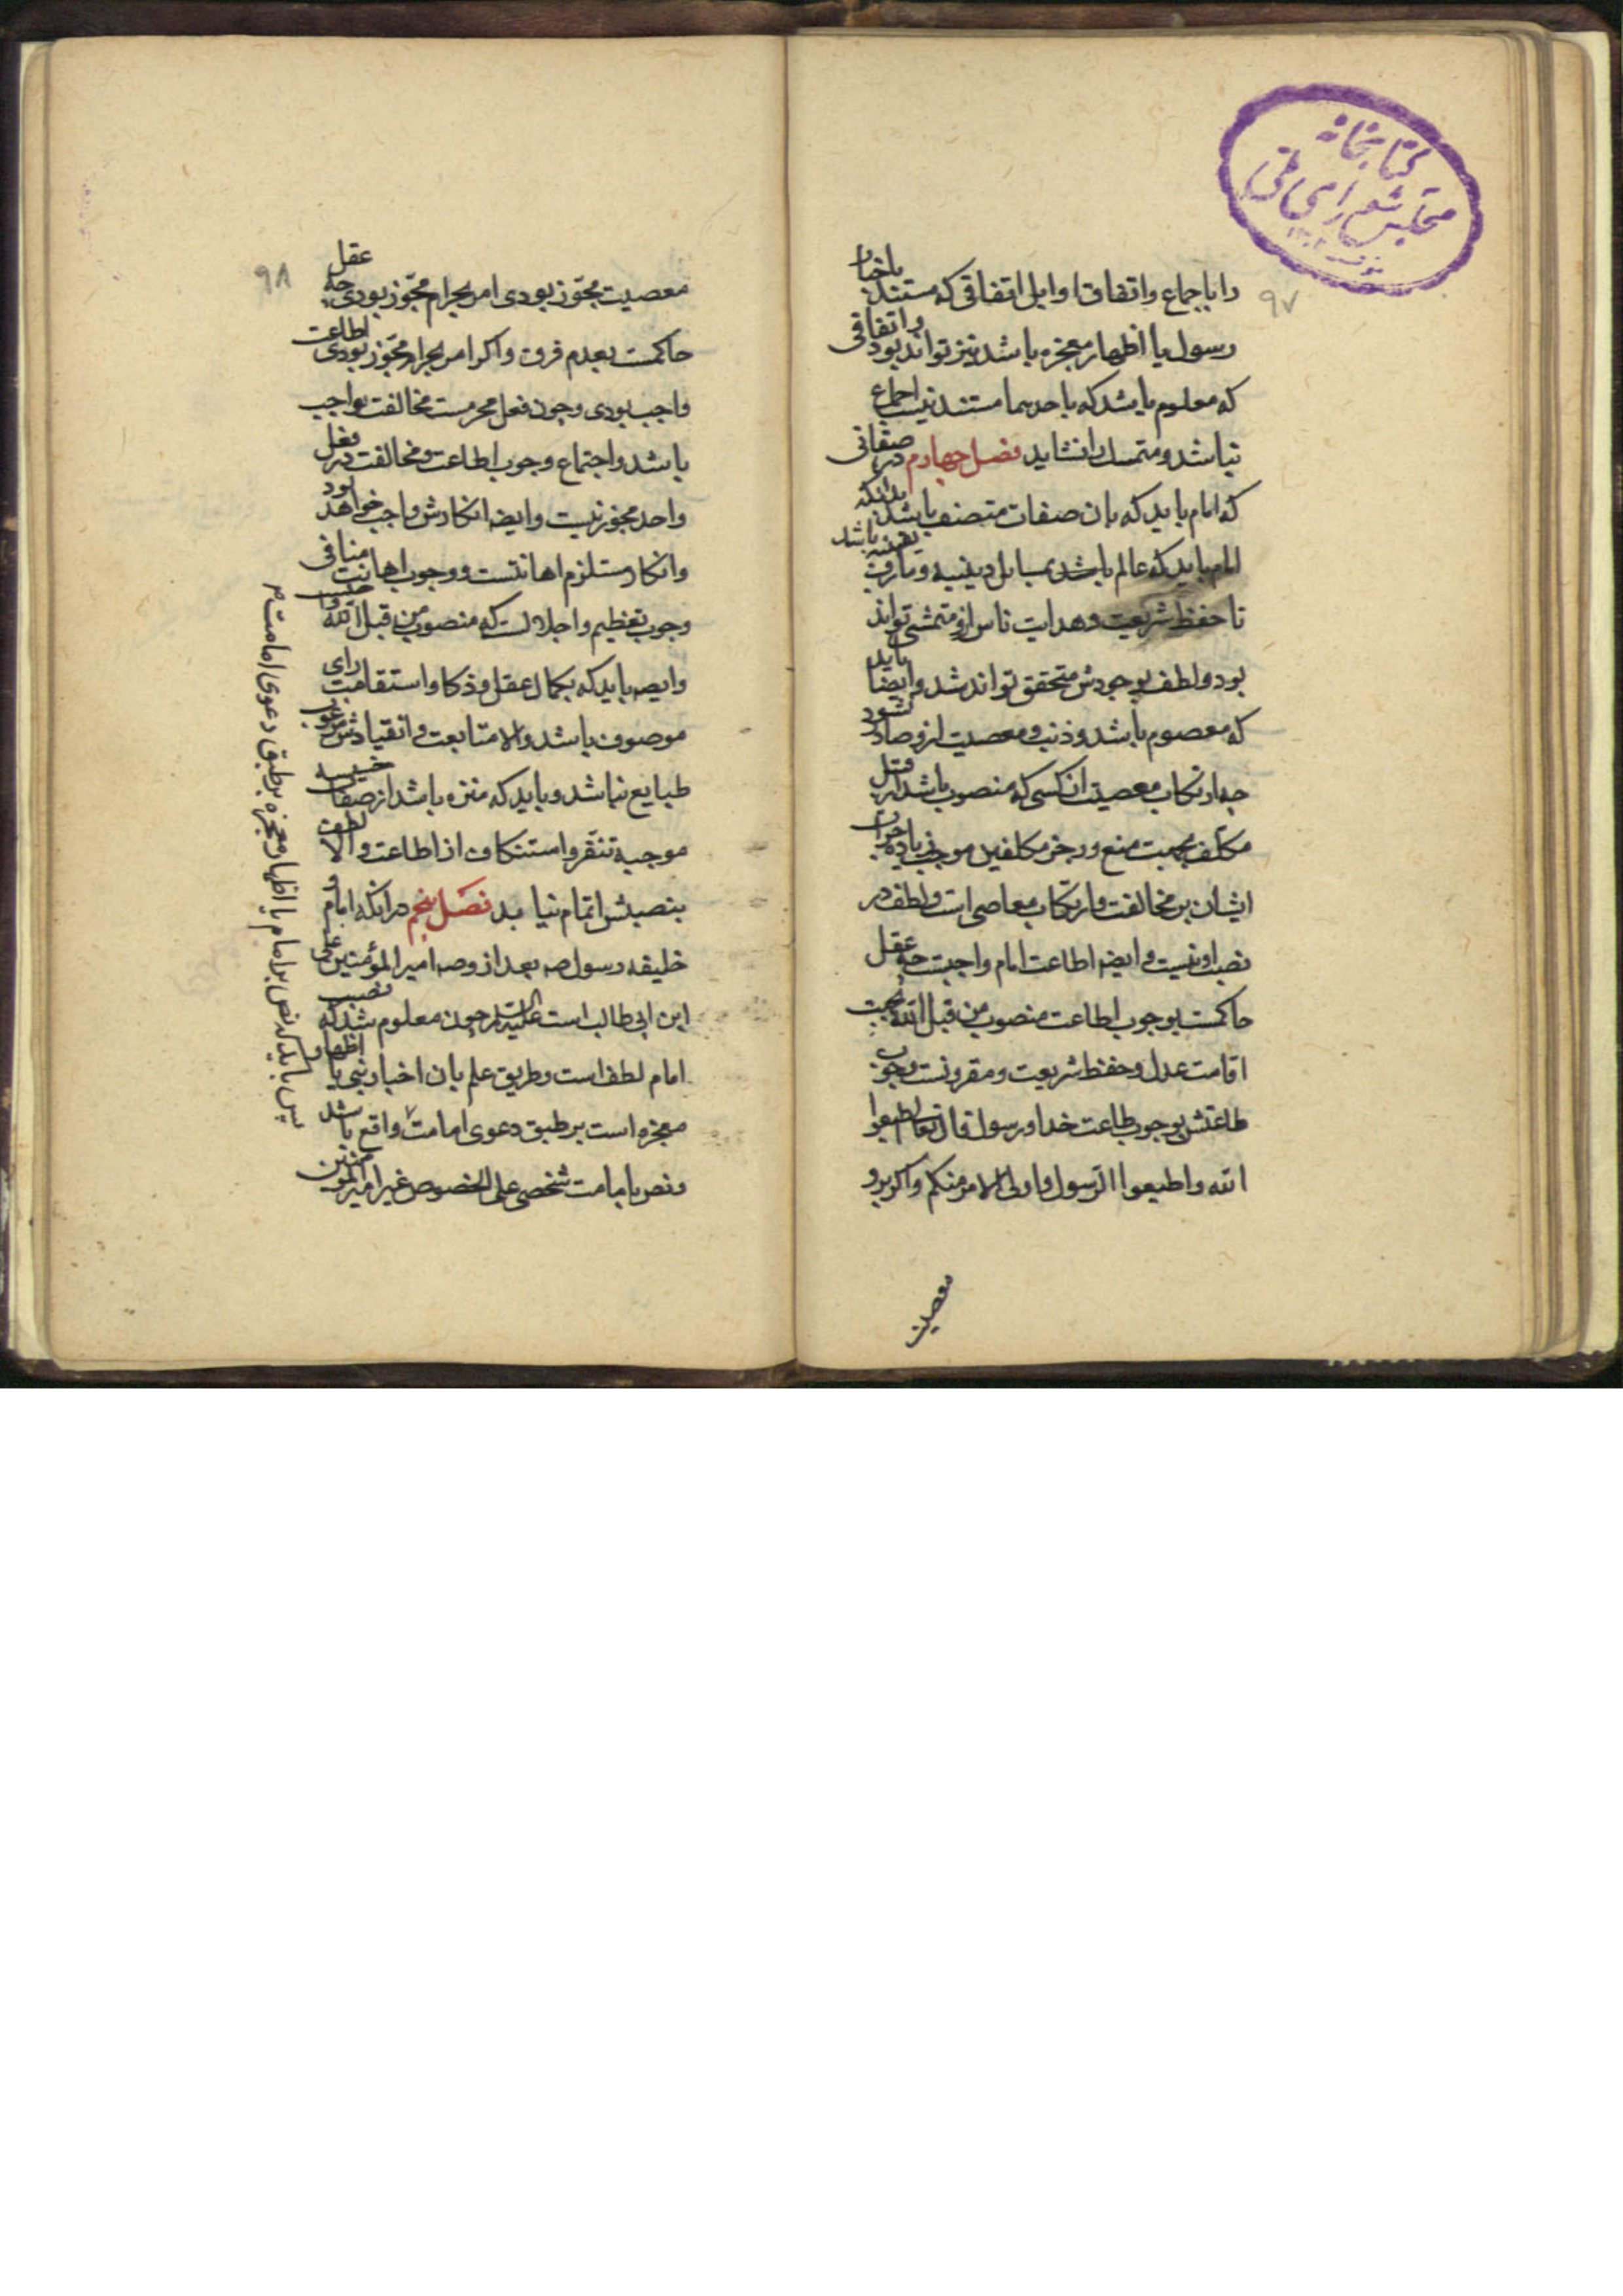 کتابخانه
مجلس شورای ملی
۹۷
را باجماع واتفاق اوایل اتفاقی که مستند باخبار
رسول یا اظهار معجزه باشد نیز تواند بود واتفاقی
که معلوم باشد که باحدهما مستند نیست اجماع
نباشد و متمسک را نشاید فصل چهارم در صفاتی
که امام باید که بان صفات متصف باشد بدانکه
امام باید که عالم باشد بمسایل دینیه و
تا حفظ شریعت و هدایت ناس ازو متمشی تواند
بود و لطف بوجودش متحقق تواند شد وایضا باید
که معصوم باشد و ذنب و معصیت ازو صادر نشود
چه ارتکاب معصیت انکسی که منصوب باشد از قبل
مکلف بجهت منع و زجر مکلفین موجب زیاده جرات
ایشان بر مخالفت وارتکاب معاصی است و لطف در
نصب او نیست و ایضه اطاعت امام واجبست چه عقل
حاکمست بوجوب اطاعت منصوب من قبل الله بجهت
اقامت عدل و حفظ شریعت و مقرونست وجوب
طاعتش بوجوب طاعت خدا و رسول قال تعالی اطیعوا
الله واطیعوا الرسول واولی الامر منکم واکر برو
معصیت
۹۸
معصیت مجوز بودی امر بحرام مجوز بودی چه عقل
حاکمست بعدم فرق واکر امر بحرام مجوز بودی اطاعت
واجب بودی وچون فعل محرمست مخالفت واجب
باشد واجتماع وجوب اطاعت و مخالفت در فعل
واحد مجوز نیست وایضه انکارش واجب خواهد بود
وانکار مستلزم اهانتست ووجوب اهانت منافی
وجوب تعظیم واجلالست که منصوب من قبل الله
وایضه باید که بکمال عقل وذکا واستقامت رای
موصوف باشد والا متابعت و انقیادش مرغوب
طبایع نباشد وباید که منزه باشد از صفات خسیسه
موجبه تنفر واستنکاف از اطاعت والا لطف
بنصبش اتمام نیابد فصل پنجم در انکه امام و
خلیفه رسول صه بعد از وصه امیر المؤمنین علی
ابن ابی طالب است علیه السلام چون معلوم شد که نصب
امام لطف است وطریق علم بان اخبار نبی یا اظهار
معجزه است بر طبق دعوی امامت واقع باشد
ونص بامامت شخصی علی الخصوص غیر امیر المؤمنین
پس باید که نص بر امام یا اظهار معجزه بر طبق دعوی امامت